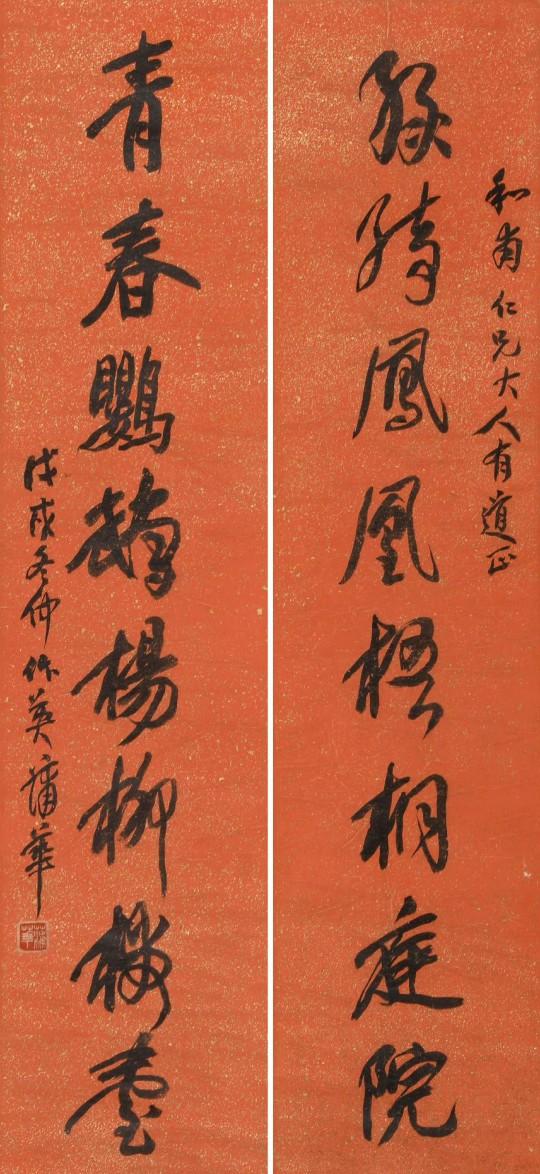 和甫仁兄大人有道正
綠綺鳳凰梧桐庭院
青春鸚鵡楊柳樓臺
戊戌冬仲作英蒲華
蒲華